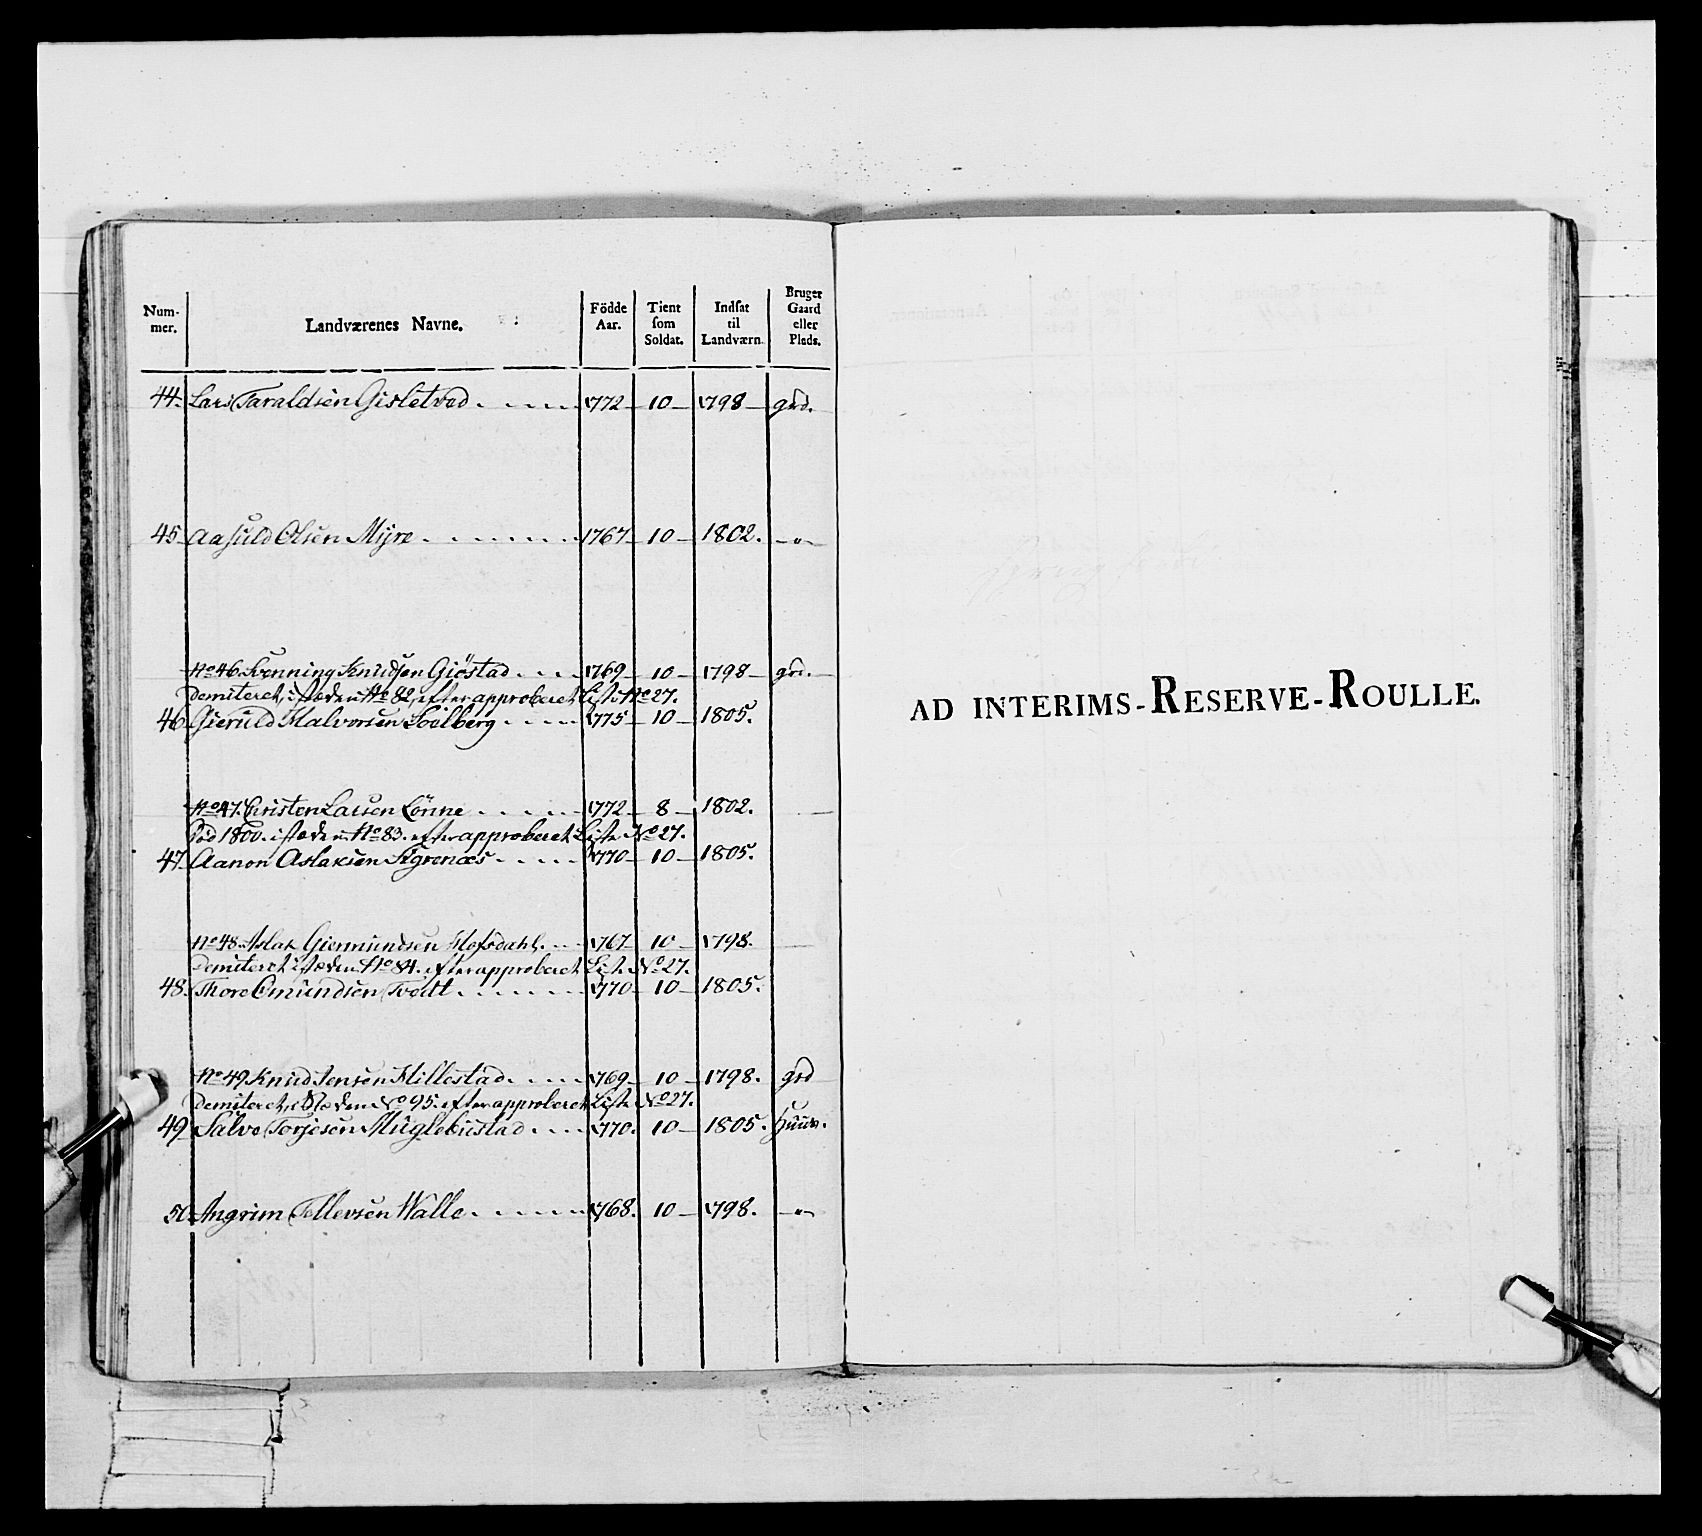 Num-
mer.
Landværenes Navne.
Födde
Aar.
Tient
som
Soldat.
Indsat
til
Landværn.
Bruger
Gaard
eller
Plads.
44. Lars Taraldsen Gisletvod 1772 10 1798 grd.
45 Aasuld Olsen Myre 1767 10 1802. "
No 46 Svenning Knudsen Giöstad 1769 10 1798 grd.
Demiteret, isteden No 82, efter approberet List No 27.
46 Gieruld Halvorsen Soelberg 1775 10 1805.
No 47. Christen Larsen Lönne 1772 8 1802.
Död 1800. isteden No 83. efter approberet Liste No 27.
47. Aanon Aslaksen 1770 10 1805.
No 48. Aslak Giermundsen Mofsdahl. 1767 10 1798.
Demiteret isteden No 84. efter approberet List. No 27.
48. Thore Omundsen Tvedt 1770 10 1805.
No 49 Knud Jensen Hillestad 1769 10 1798. grd
Demiteret, isteden No 95. efter approberet List. No 27.
49. Salve Torjesen Muglebustad 1770. 10 1805. Huus.
50. Angrim Tellevsen Walle 1768. 10 1798. "
AD INTERIMS-RESERVE-ROULLE.